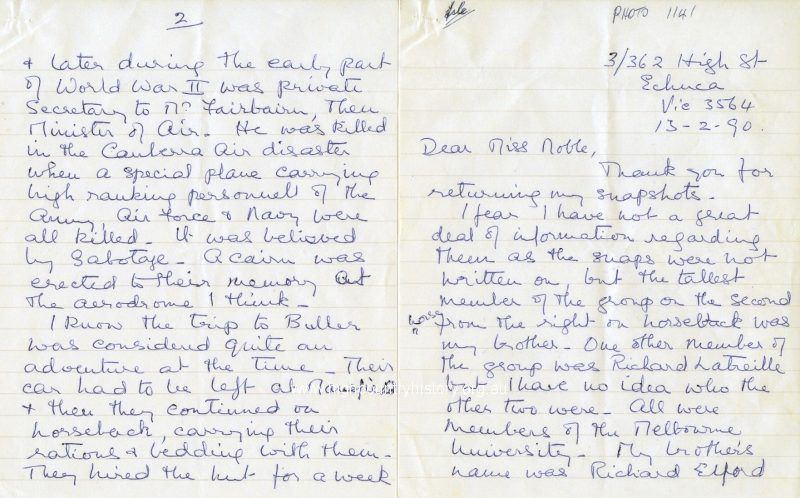 PHOTO 1141
3/362 High St
Echuca
Vic 3564
13-2-90.
Dear Miss Noble,
Thank you for
returning my snapshots.
I fear I have not a great
deal of information regarding
them as the snaps were not
written on, but the tallest
member of the group on the second
horse from the right on horseback was
my brother - One other member of
the group was Richard Latreille
I have no idea who the
other two were - All were
members of the Melbourne
University - My brother's
name was Richard Elford
2
& later during the early part
of World War II was private
Secretary to Mr Fairbairn, then
Minister of Air - He was killed
in the Canberra Air disaster
when a special plane carrying
high ranking personnell of the
Army, Air Force & Navy were
all killed - It was believed
by Sabotage - A cairn was
erected to their memory at
the aerodrome I think -
I know the trip to Buller
was considerd quite an
adventure at the time - Their
car had to be left at
& then they continued on
horseback, carrying their
rations & bedding with them -
They hired the hut for a week